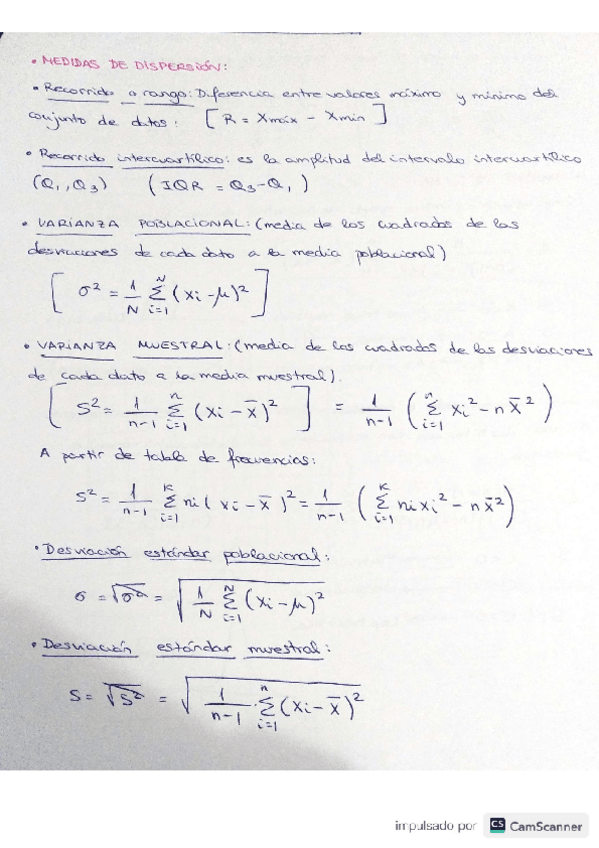 • MEDIDAS DE DISPERSIÓN:
• Recorrido o rango: Diferencia entre valores máximo y mínimo del
conjunto de datos: [ R = Xmáx - Xmin ]
• Recorrido intercuartílico: es la amplitud del intervalo intercuartílico
(Q₁, Q₃) ( IQR = Q₃-Q₁ )
• VARIANZA POBLACIONAL: (media de los cuadrados de las
desviaciones de cada dato a la media poblacional)
[ σ² = 1/N Σ_{i=1}^{N} (xi - μ)² ]
• VARIANZA MUESTRAL: (media de los cuadrados de las desviaciones
de cada dato a la media muestral).
[ S² = 1/(n-1) Σ_{i=1}^{n} (xi - x̄)² ] = 1/(n-1) ( Σ_{i=1}^{n} xi² - n x̄² )
A partir de tabla de frecuencias:
S² = 1/(n-1) Σ_{i=1}^{K} ni ( xi - x̄ )² = 1/(n-1) ( Σ_{i=1}^{K} ni xi² - n x̄² )
• Desviación estándar poblacional:
σ = √σ² = √( 1/N Σ_{i=1}^{N} (xi - μ)² )
• Desviación estándar muestral:
S = √S² = √( 1/(n-1) · Σ_{i=1}^{n} (xi - x̄)² )
impulsado por CS CamScanner